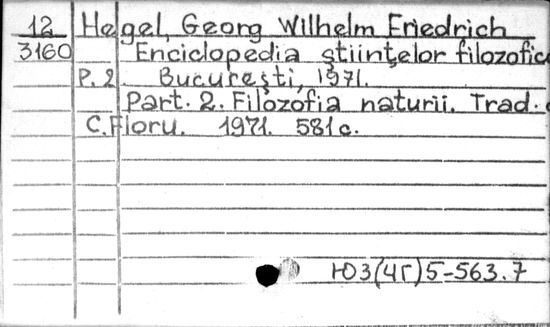 12 Hegel, Georg Wilhelm Friedrich
3160 Enciclopedia ştiinţelor filozofice
P. 2 Bucureşti, 1971.
Part. 2. Filozofia naturii. Trad.
C. Floru. 1971. 581 c.
Ю3(4Г)5-563.7